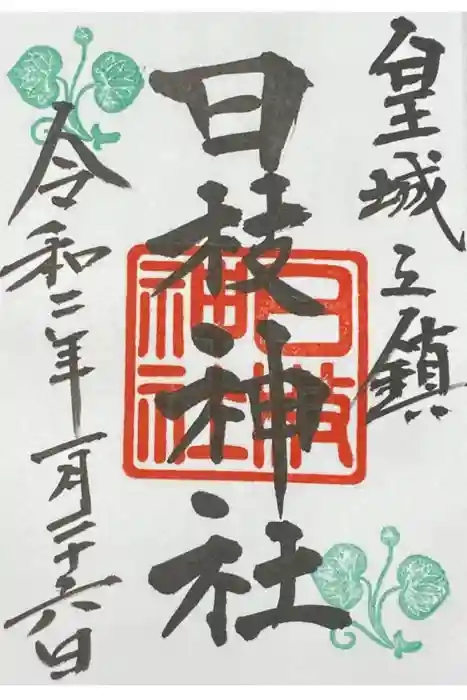 皇城之鎮
日枝神社
日枝
神社
令和二年一月二十六日